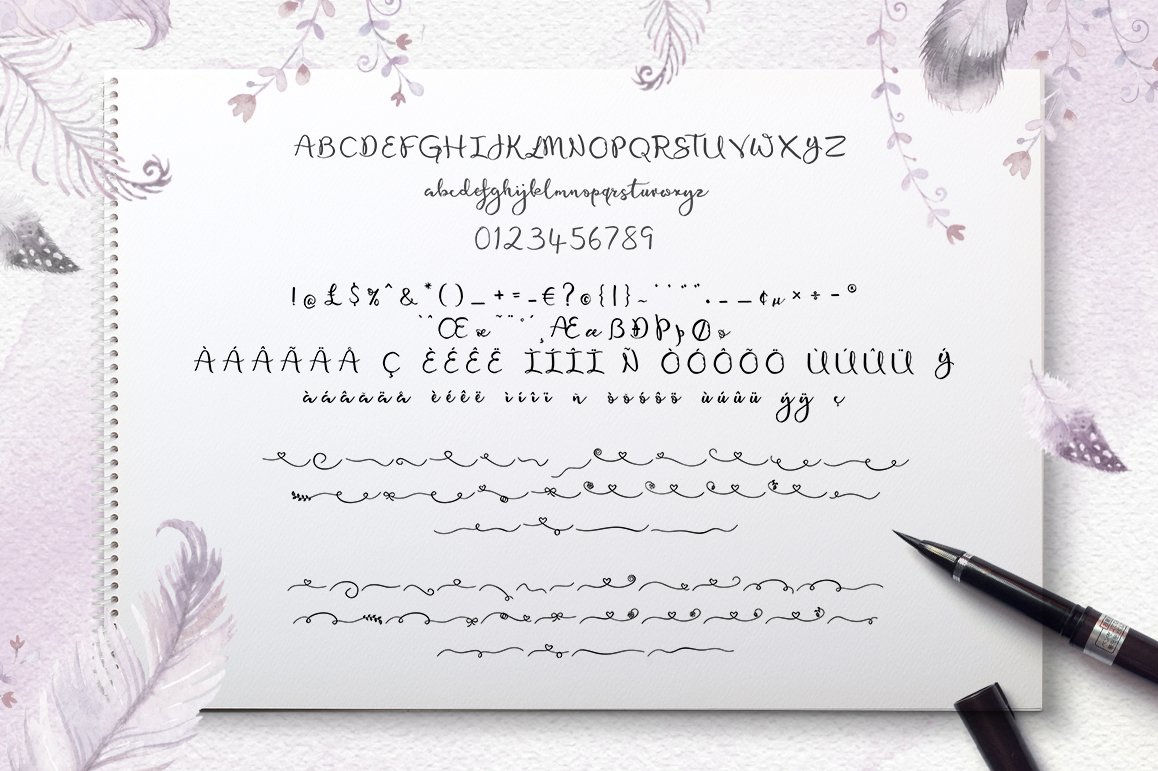 ABCDEFGHIJKLMNOPQRSTUVWXYZ
abcdefghijklmnopqrstuvwxyz
0123456789
!@£$%^&*()_+=-€?©{|}~`´¨¨•–—¢µ×÷-®
`ˆŒœ˜¨°´¸ÆæßÐÞþØø
ÀÁÂÃÄÅ Ç ÈÉÊË ÌÍÎÏ Ñ ÒÓÔÕÖ ÙÚÛÜ Ý
àáâãäå èéêë ìíîï ñ òóôõö ùúûü ýÿ ç